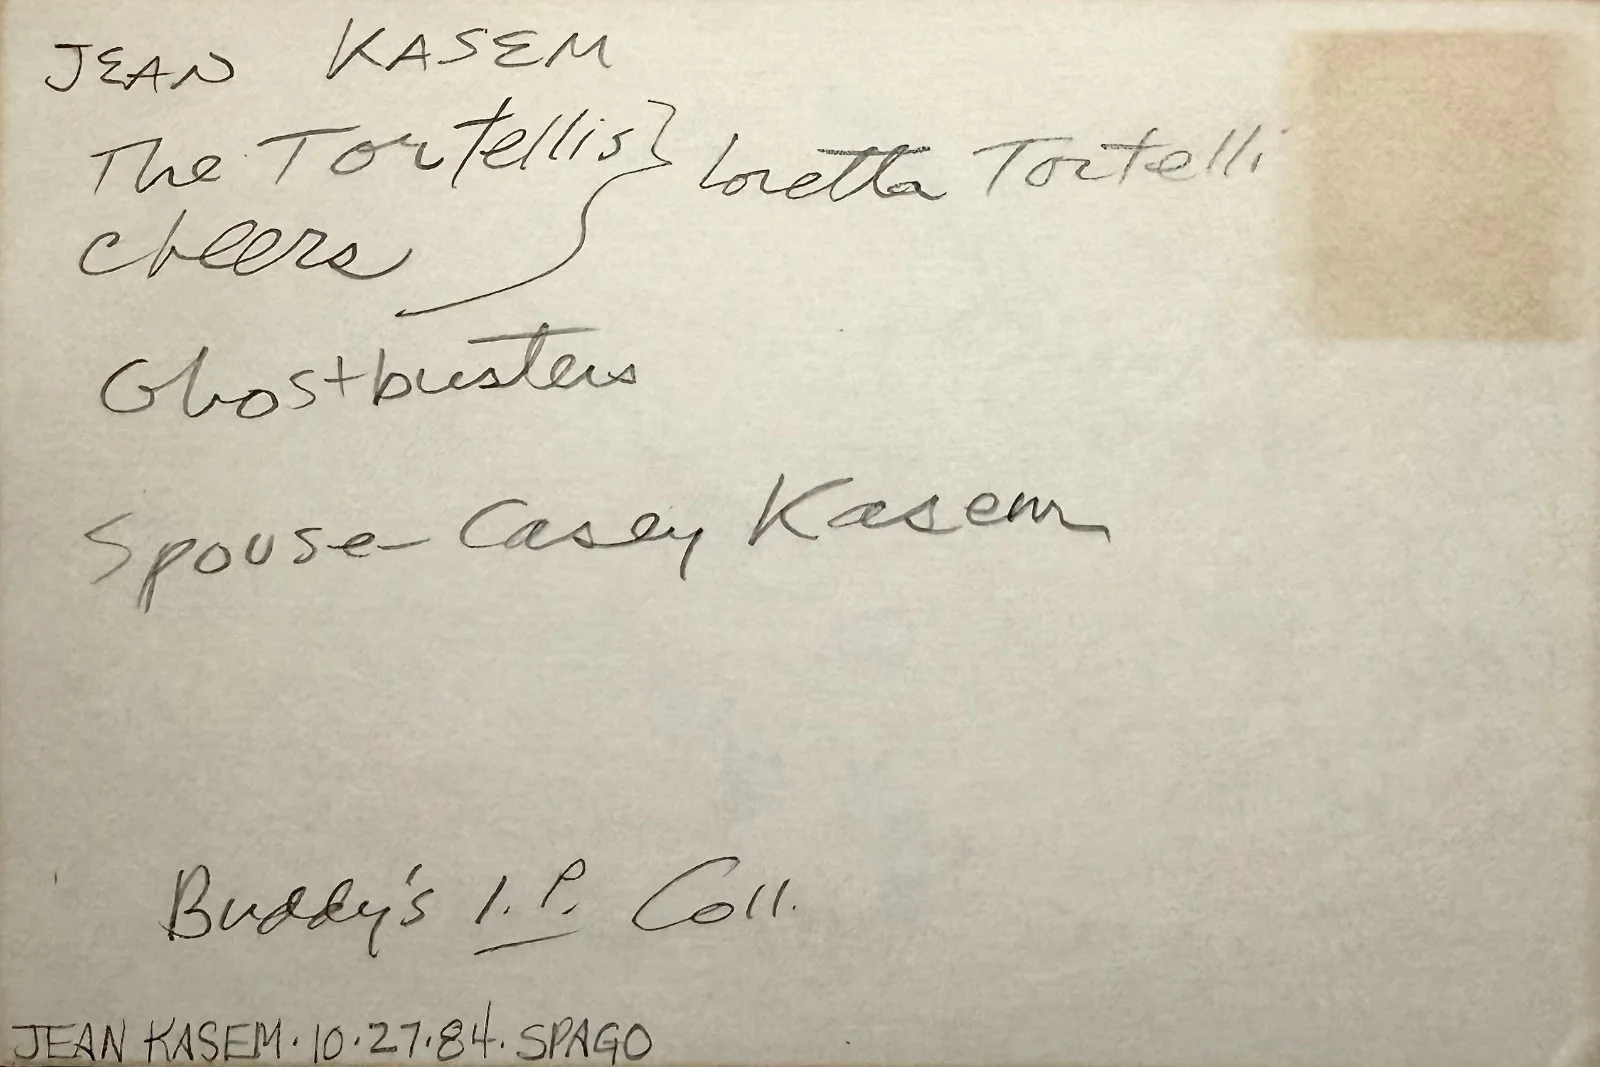 JEAN KASEM
The Tortellis } Loretta Tortelli
Cheers
Ghostbusters
Spouse- Casey Kasem
Buddy's I.P. Coll.
JEAN KASEM·10·27·84·SPAGO